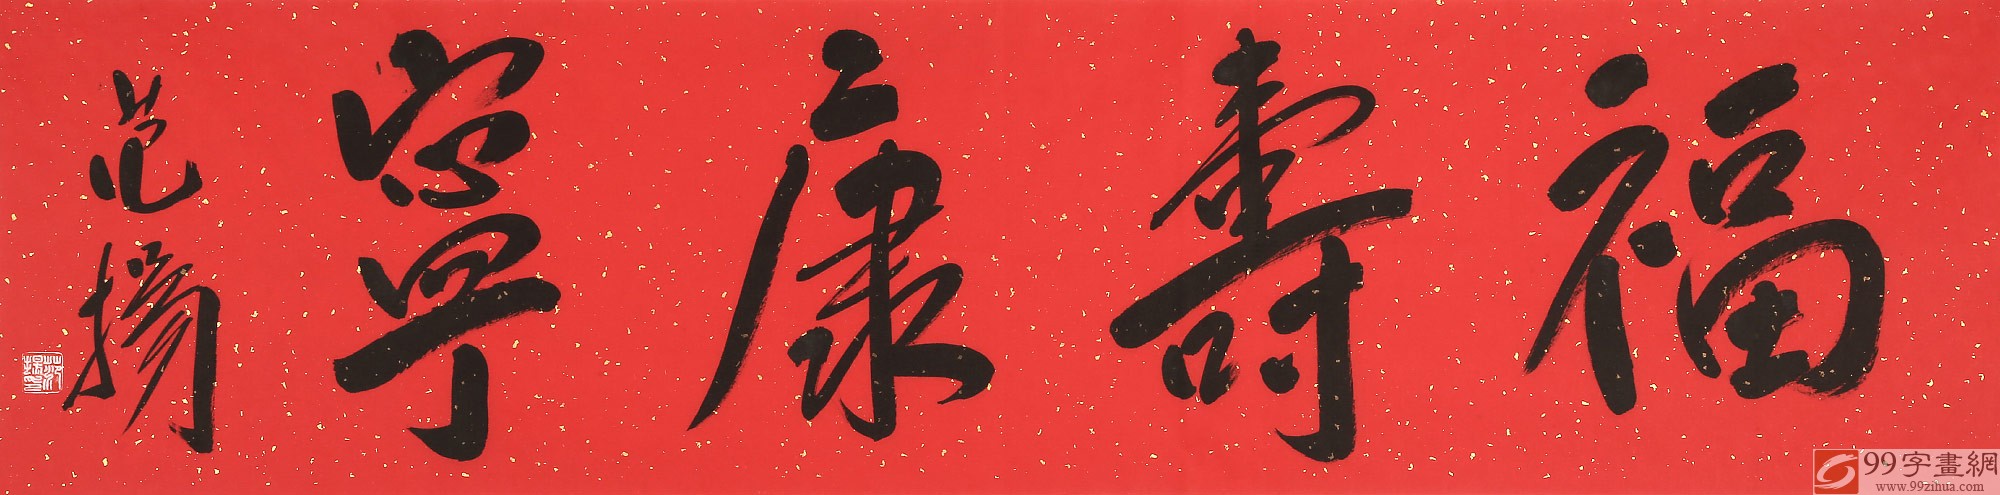 福壽康寧
范揚
99字畫網
www.99zihua.com